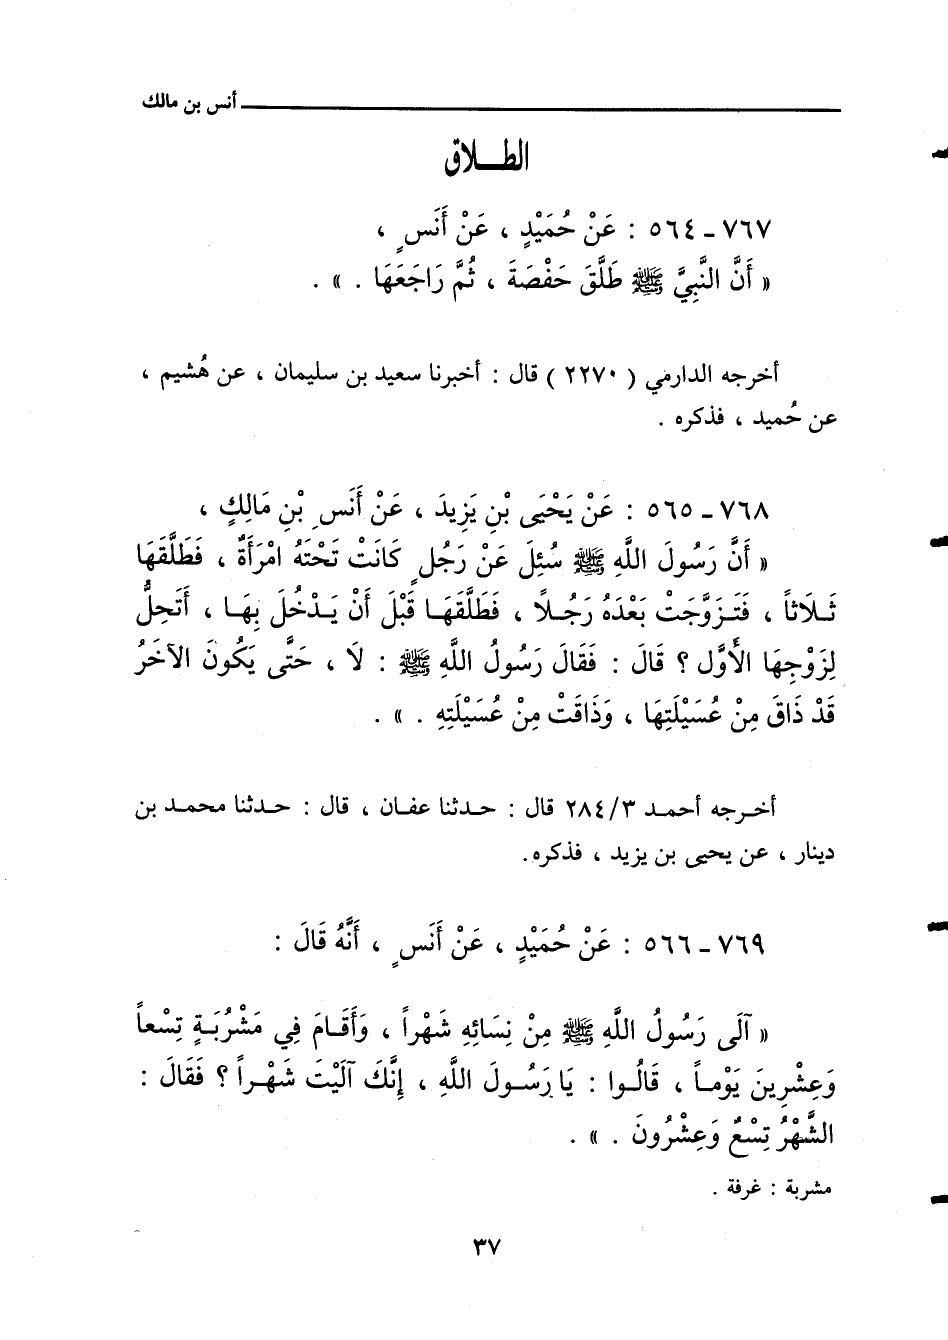 أنس بن مالك
الطـــلاق
٧٦٧ ـ ٥٦٤ : عَنْ حُمَيْدٍ ، عَنْ أَنَسٍ ،
« أَنَّ النَّبِيَّ ﷺ طَلَّقَ حَفْصَةَ ، ثُمَّ رَاجَعَهَا . » .
أخرجه الدارمي ( ٢٢٧٠ ) قال : أخبرنا سعيد بن سليمان ، عن هُشيم ،
عن حُميد ، فذكره .
٧٦٨ ـ ٥٦٥ : عَنْ يَحْيَى بْنِ يَزِيدَ ، عَنْ أَنَسِ بْنِ مَالِكٍ ،
« أَنَّ رَسُولَ اللَّهِ ﷺ سُئِلَ عَنْ رَجُلٍ كَانَتْ تَحْتَهُ امْرَأَةٌ ، فَطَلَّقَهَا
ثَـلَاثاً ، فَتَـزَوَّجَتْ بَعْدَهُ رَجُـلًا ، فَطَلَّقَهَـا قَبْلَ أَنْ يَـدْخُلَ بِهَـا ، أَتَحِلُّ
لِزَوْجِهَا الأَوَّلِ ؟ قَالَ : فَقَالَ رَسُولُ اللَّهِ ﷺ : لَا ، حَتَّى يَكُونَ الآخَرُ
قَدْ ذَاقَ مِنْ عُسَيْلَتِهَا ، وَذَاقَتْ مِنْ عُسَيْلَتِهِ . » .
أخـرجه أحمـد ٣/٢٨٤ قال : حـدثنا عفـان ، قال : حـدثنا محمـد بن
دينار ، عن يحيى بن يزيد ، فذكره.
٧٦٩ ـ ٥٦٦ : عَنْ حُمَيْدٍ ، عَنْ أَنَسٍ ، أَنَّهُ قَالَ :
« آلَى رَسُولُ اللَّهِ ﷺ مِنْ نِسَائِهِ شَهْراً ، وَأَقَـامَ فِي مَشْرُبَـةٍ تِسْعاً
وَعِشْرِينَ يَوْمـاً ، قَالُـوا : يَا رَسُـولَ اللَّهِ ، إِنَّكَ آلَيْتَ شَهْـراً ؟ فَقَالَ :
الشَّهْرُ تِسْعٌ وَعِشْرُونَ . » .
مشربة : غرفة .
٣٧